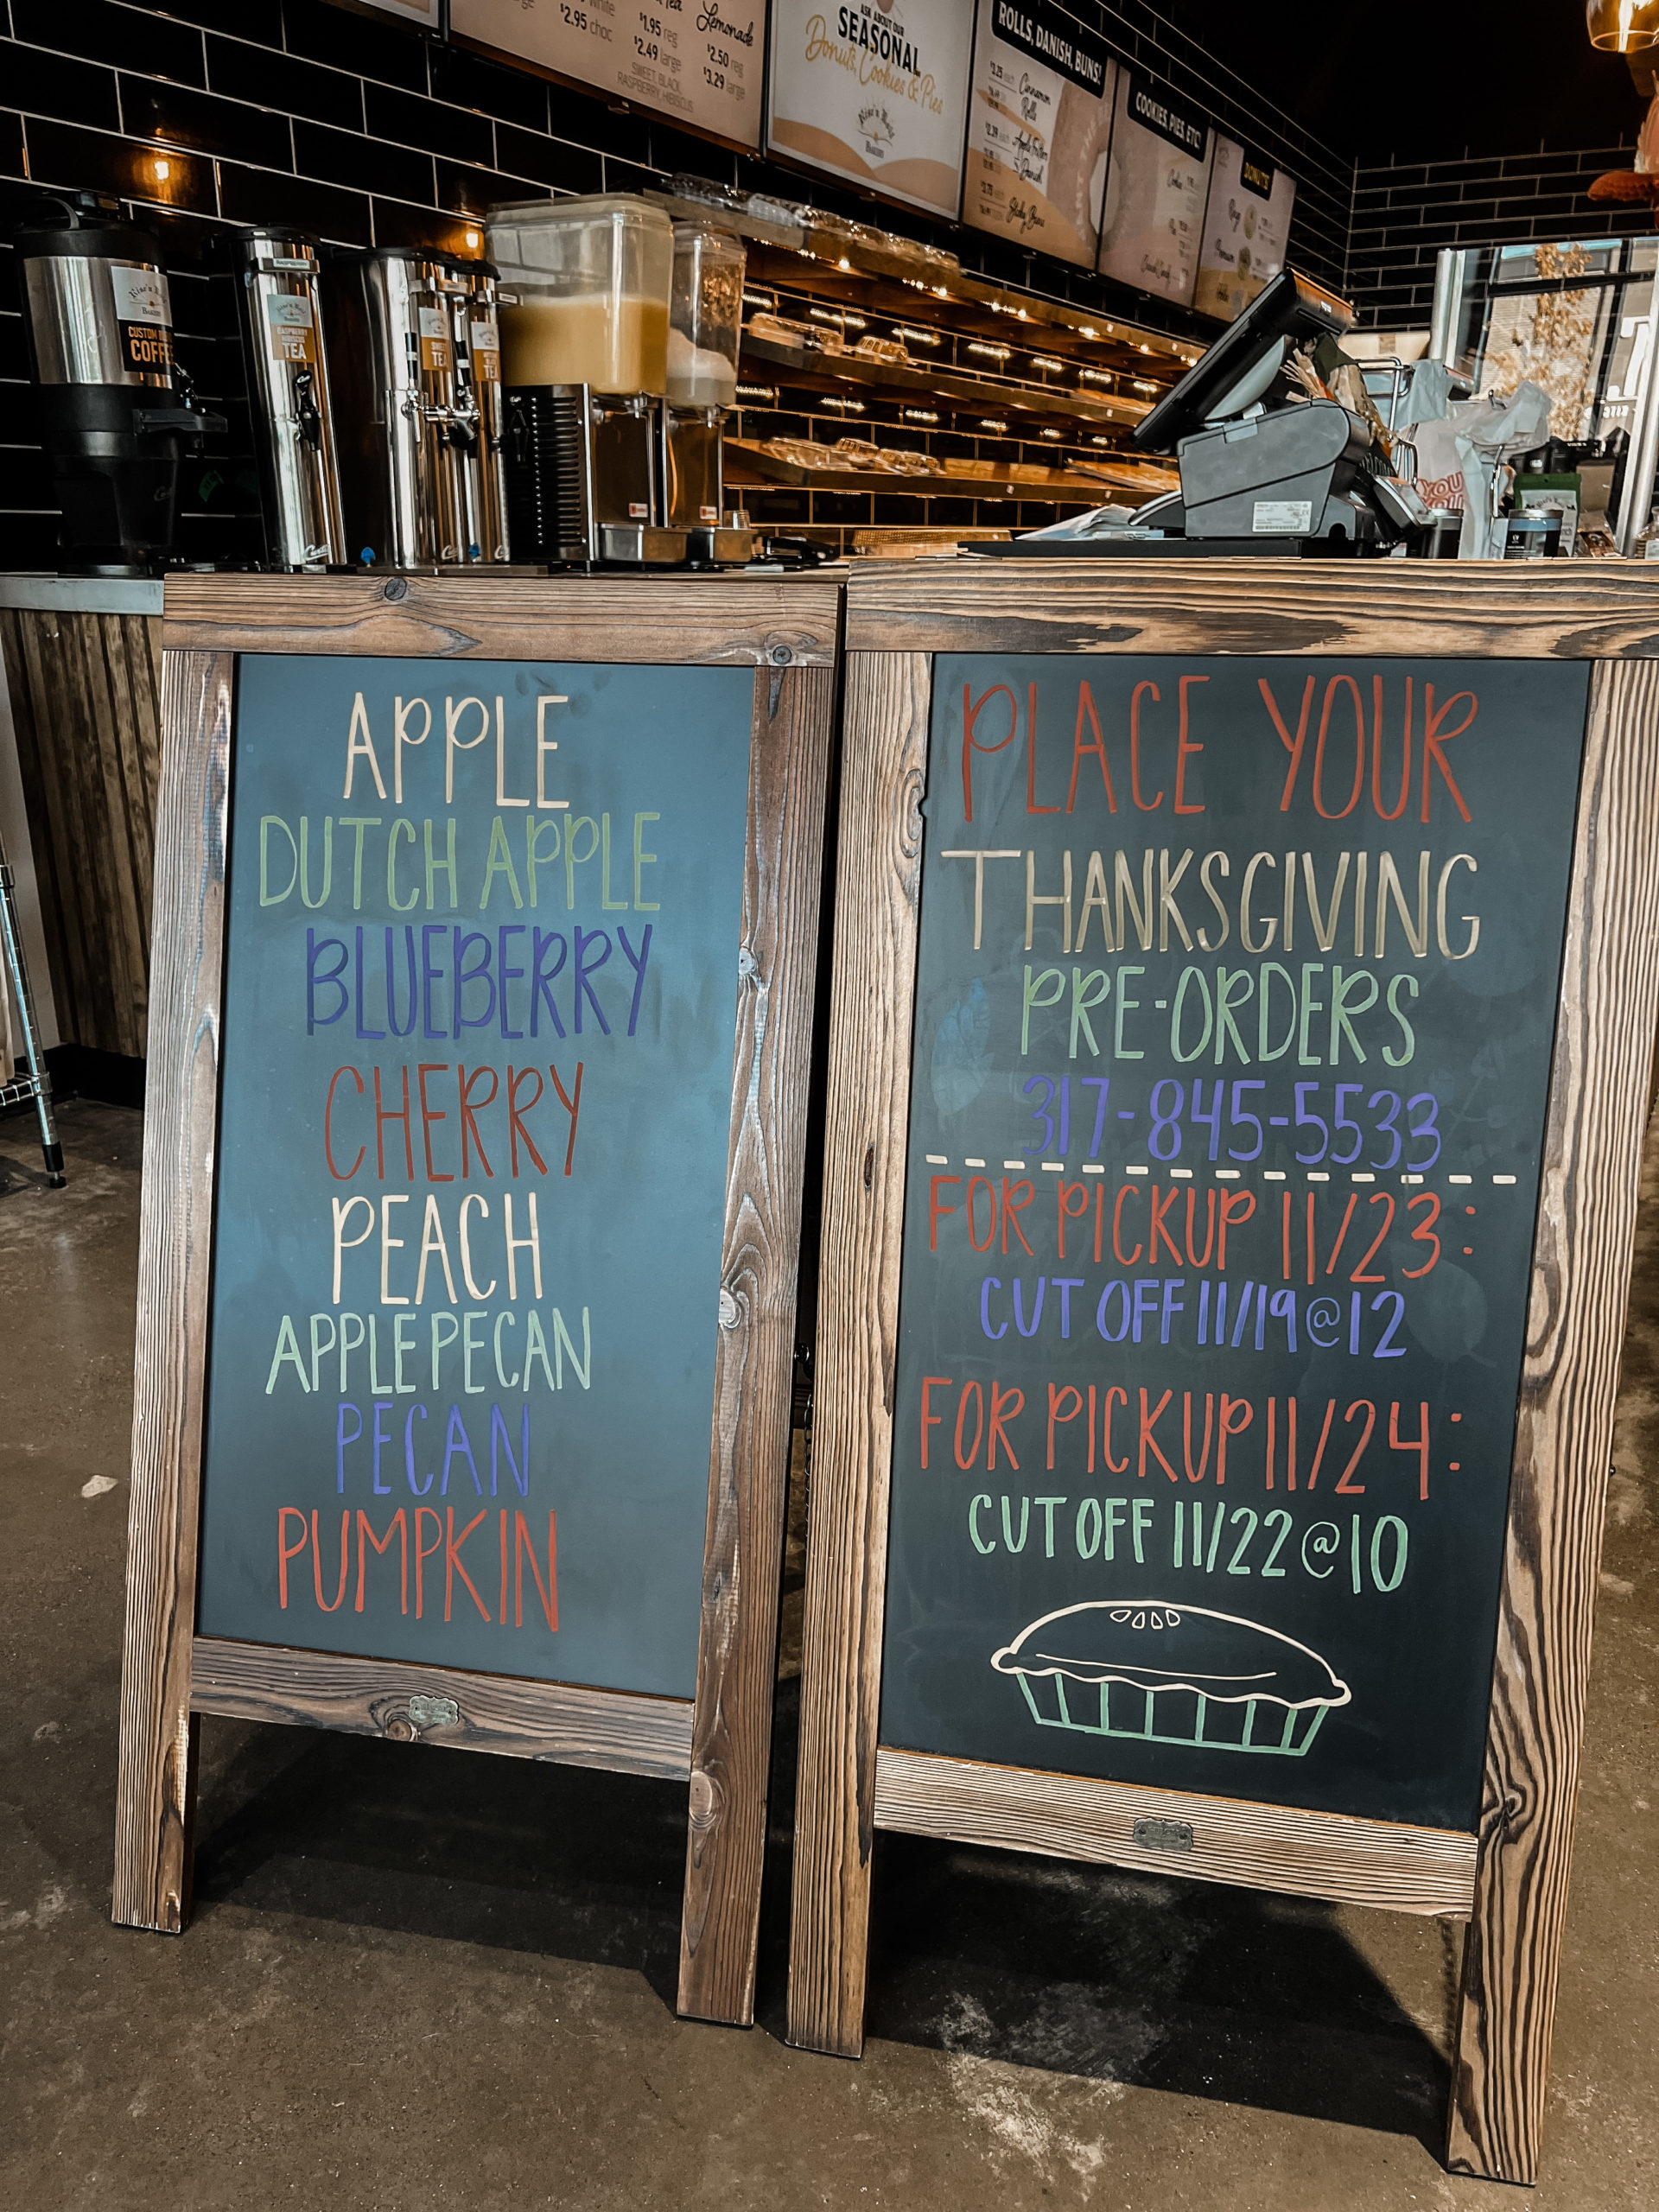 $2.95 choc
$1.95 reg
$2.49 large
SWEET, BLACK,
RASPBERRY, HIBISCUS
Lemonade
$2.50 reg
$3.29 large
ASK ABOUT OUR
SEASONAL
Donuts, Cookies & Pies
Rise'n Roll
BAKERY
ROLLS, DANISH, BUNS!
Cinnamon
Rolls
Apple Fritter
Danish
Sticky Buns
COOKIES, PIES, ETC!
DONUTS!
Rise'n Roll
BAKERY
COFFEE
RASPBERRY
HIBISCUS
TEA
TEA
TEA
APPLE
DUTCH APPLE
BLUEBERRY
CHERRY
PEACH
APPLE PECAN
PECAN
PUMPKIN
PLACE YOUR
THANKSGIVING
PRE-ORDERS
317-845-5533
FOR PICKUP 11/23:
CUT OFF 11/19@12
FOR PICKUP 11/24:
CUT OFF 11/22@10